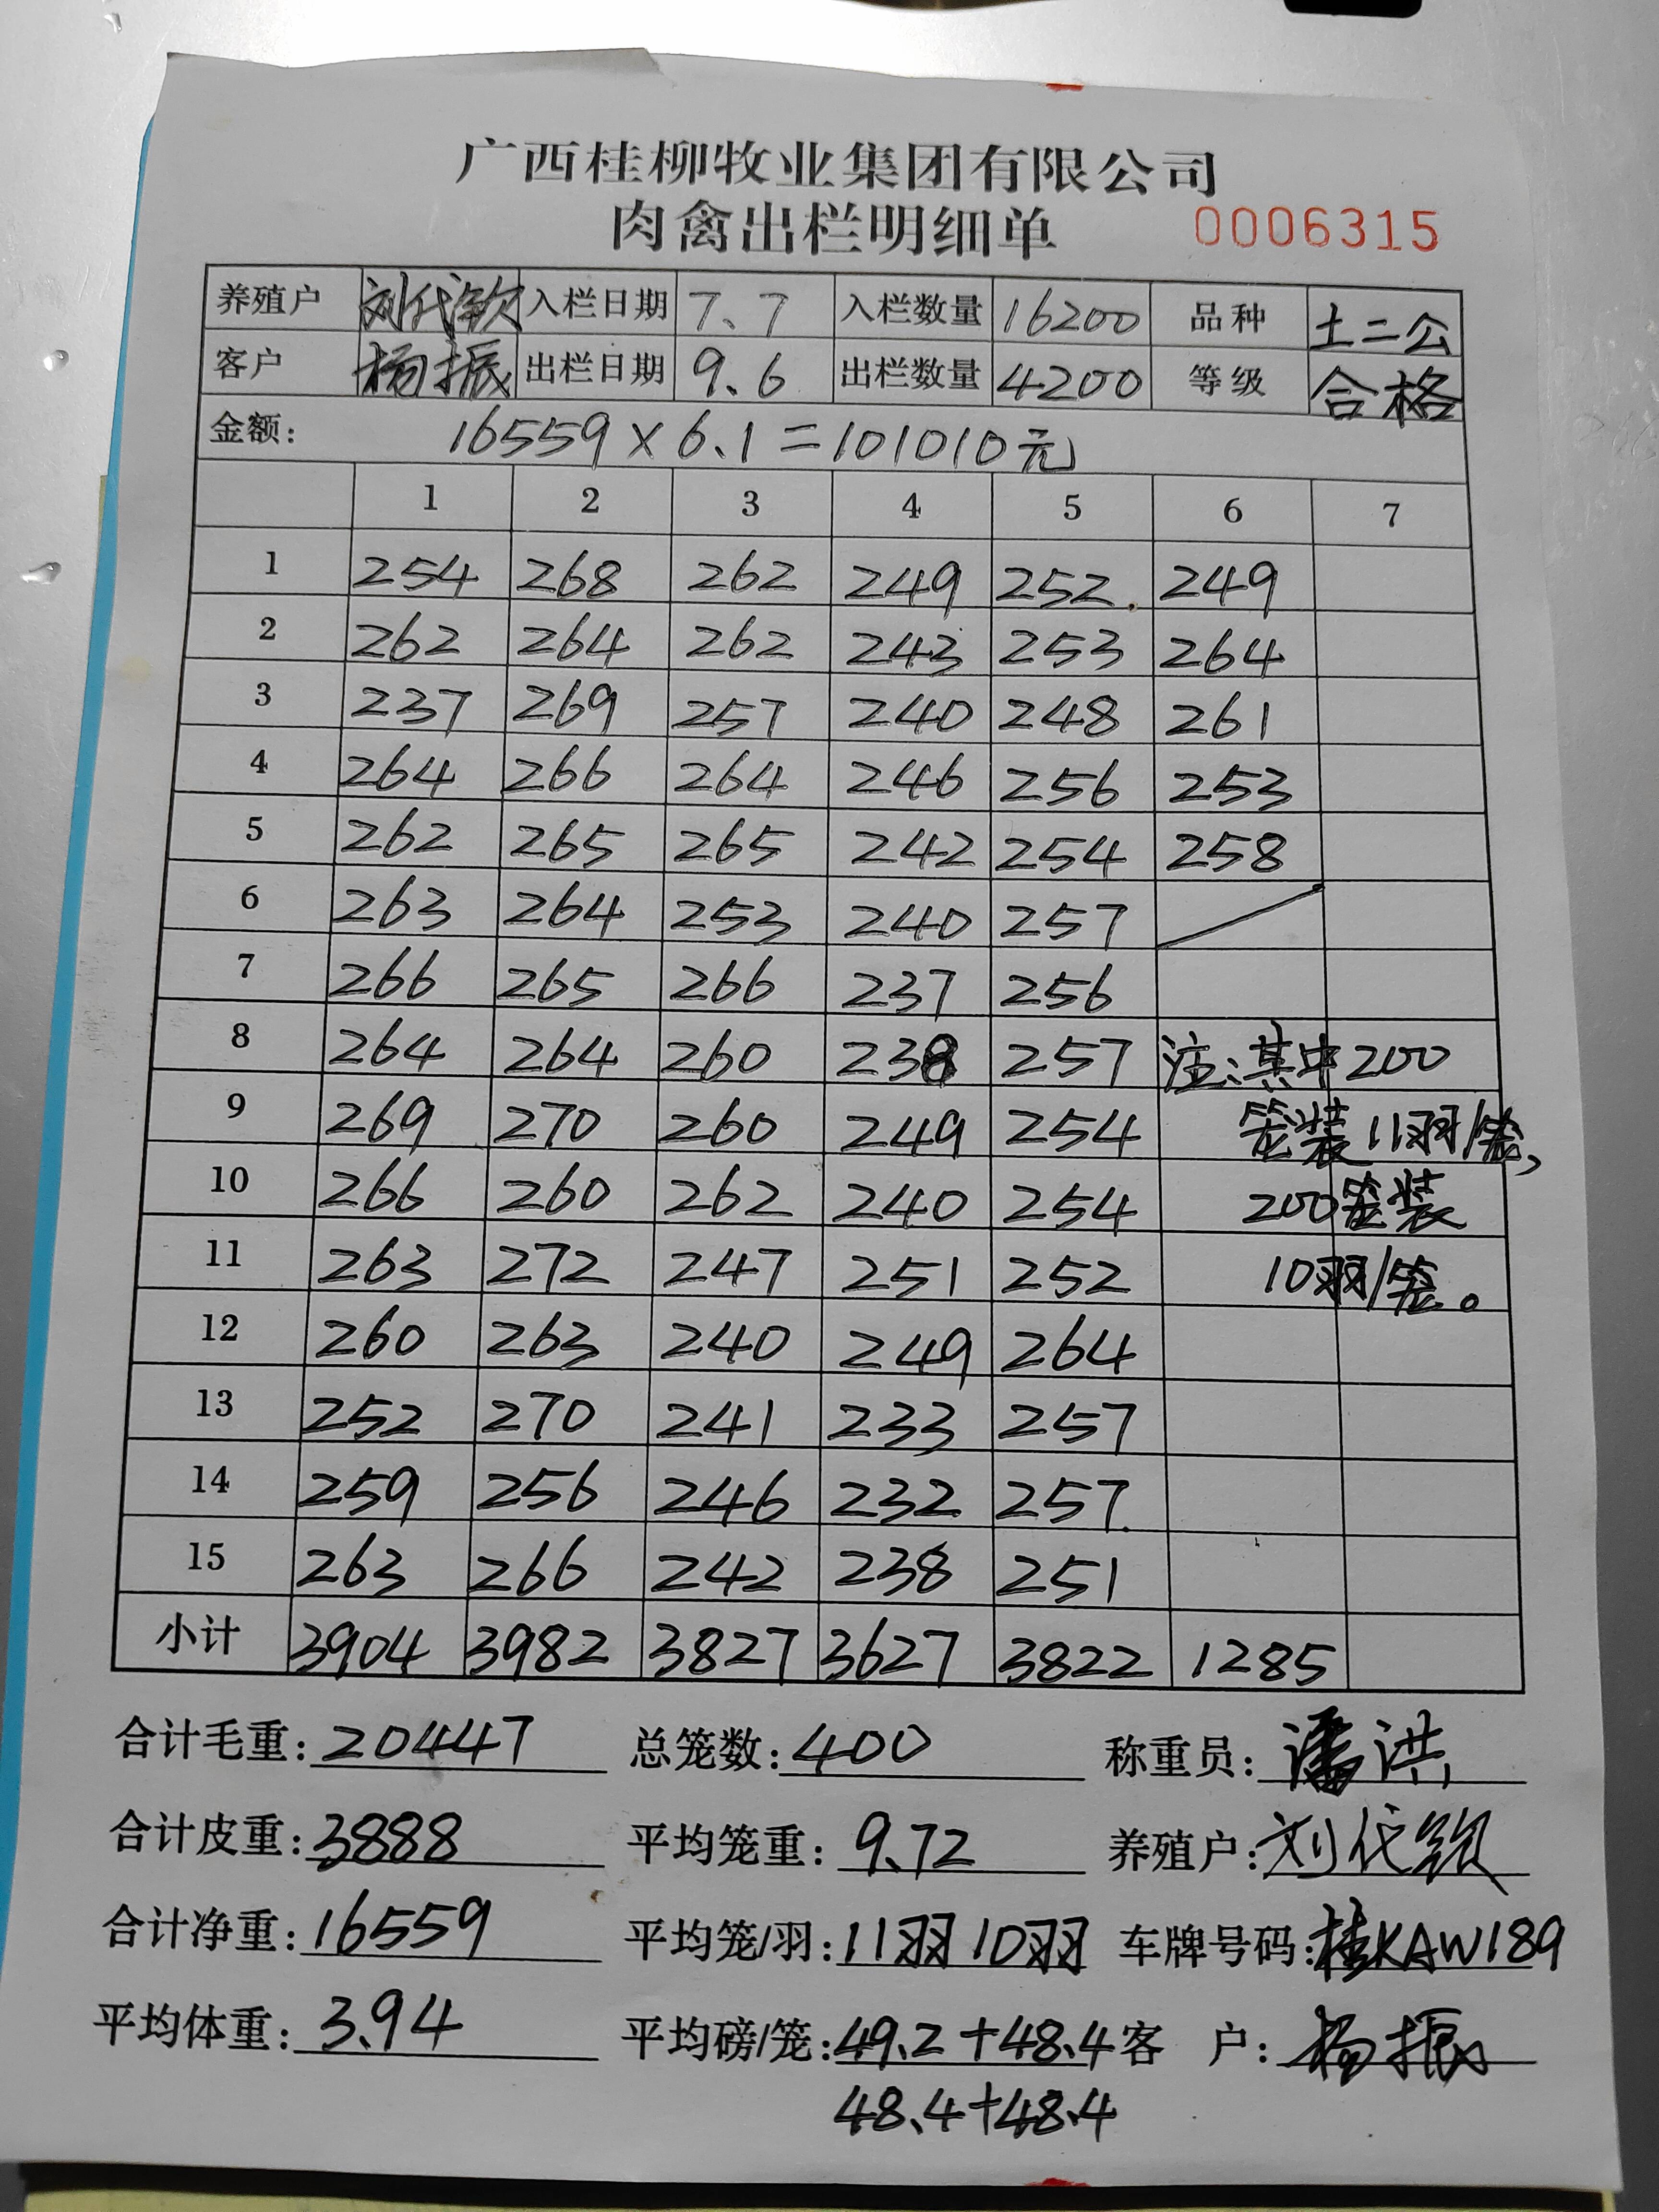 广西桂柳牧业集团有限公司
肉禽出栏明细单 0006315
养殖户 刘代钦 入栏日期 7.7 入栏数量 16200 品种 土二公
客户 杨振 出栏日期 9.6 出栏数量 4200 等级 合格
金额: 16559×6.1=101010元
1 2 3 4 5 6 7
1 254 268 262 249 252. 249
2 262 264 262 243 253 264
3 237 269 257 240 248 261
4 264 266 264 246 256 253
5 262 265 265 242 254 258
6 263 264 253 240 257
7 266 265 266 237 256
8 264 264 260 238 257 注:其中200
9 269 270 260 249 254 笼装11羽/笼,
10 266 260 262 240 254 200笼装
11 263 272 247 251 252 10羽/笼。
12 260 263 240 249 264
13 252 270 241 233 257
14 259 256 246 232 257
15 263 266 242 238 251
小计 3904 3982 3827 3627 3822 1285
合计毛重: 20447 总笼数: 400 称重员: 潘洪
合计皮重: 3888 平均笼重: 9.72 养殖户: 刘代钦
合计净重: 16559 平均笼/羽: 11羽10羽 车牌号码: 桂KAW189
平均体重: 3.94 平均磅/笼: 49.2+48.4 客 户: 杨振
48.4+48.4